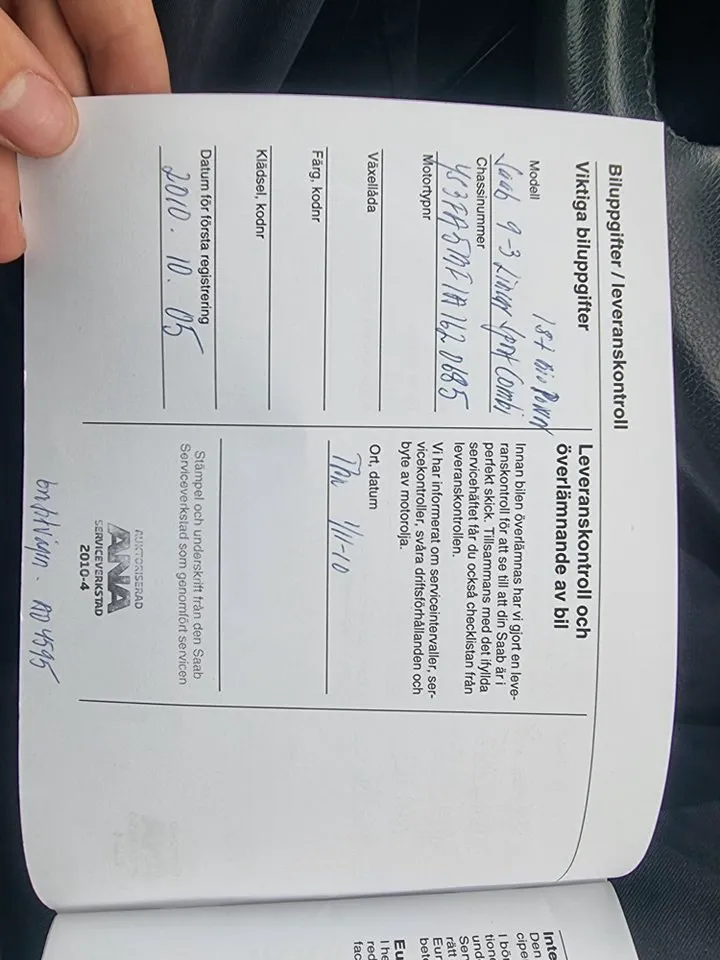 Biluppgifter / leveranskontroll
Viktiga biluppgifter
1.8t BioPower
Modell
Saab 9-3 Linear Sport Combi
Chassinummer
YS3FA5MF1A1620685
Motortypnr
Växellåda
Färg, kodnr
Klädsel, kodnr
Datum för första registrering
2010. 10. 05
Leveranskontroll och
överlämnande av bil
Innan bilen överlämnas har vi gjort en leve-
ranskontroll för att se till att din Saab är i
perfekt skick. Tillsammans med det ifyllda
servicehäftet får du också checklistan från
leveranskontrollen.
Vi har informerat om serviceintervaller, ser-
vicekontroller, svåra driftsförhållanden och
byte av motorolja.
Ort, datum
Thn 1/11-10
Stämpel och underskrift från den Saab
Serviceverkstad som genomfört servicen
AUKTORISERAD
ANA
SERVICEVERKSTAD
2010-4
Inte
Den
cipe
I bör
tione
und
Ser
rätt
Eur
beto
Eu
I he
red
fac